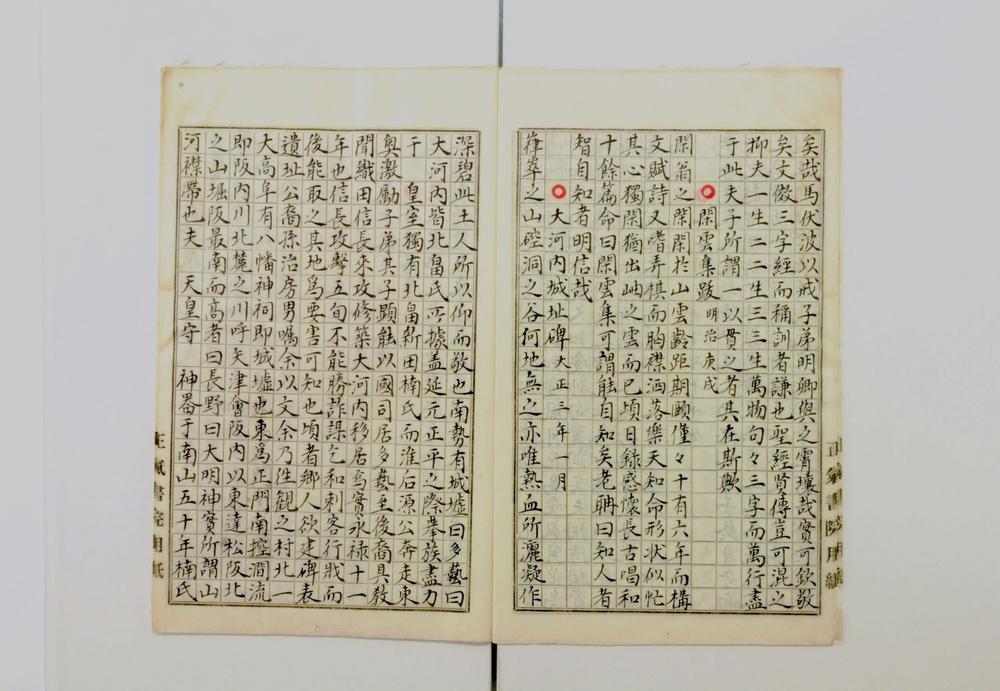 矣哉馬伏波以戒子弟明卿與之霄壤哉實可欽敬
矣文倣三字經而稱訓者謙也聖經賢傳豈可混之
抑夫一生二二生三三生萬物句々三字而萬行盡
于此夫子所謂一以貫之者其在斯歟
閑雲集跋 明治庚戌
閑翁之閑閑於山雲齡距期頤僅々十有六年而構
文賦詩又嗜弄棋而胸襟洒落樂天知命形狀似忙
其心獨閑猶出岫之雲而已頃日錄感懷長古唱和
十餘篇命曰閑雲集可謂能自知矣老聃曰知人者
智自知者明信哉
大河内城址碑 大正三年一月
嵂崒之山硿洞之谷何地無之亦唯熱血所灑凝作
深碧此土人所以仰而敬也南勢有城墟曰多藝曰
大河内皆北畠氏所據盖延元正平之際擧族盡力
于 皇室獨有北畠新田楠氏而准后源公奔走東
奥激勵子弟其子顯能以國司居多藝至後裔具教
聞織田信長來攻修築大河内移居焉實永禄十一
年也信長攻擊五旬不能勝詐謀乞和刺客行戕而
後能取之其地爲要害可知也頃者鄉人欲建碑表
遺址公裔孫治房男嘱余以文余乃徃觀之村北一
大高阜有八幡神祠即城墟也東爲正門南控澗流
即阪内川北麓之川呼矢津會阪内以東達松阪北
之山堀阪最南而高者曰長野曰大明神實所謂山
河襟帶也夫 天皇守 神器于南山五十年楠氏
正氣書院用紙
正氣書院用紙